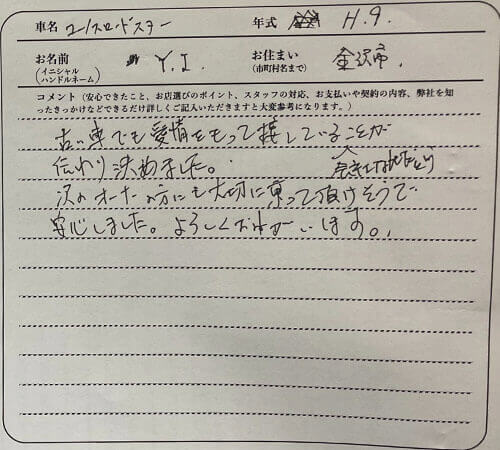 車名 ユーノスロードスター 年式 H.9.
お名前 (イニシャル ハンドルネーム) Y.I. お住まい (市町村名まで) 金沢市.
コメント (安心できたこと、お店選びのポイント、スタッフの対応、お支払いや契約の内容、弊社を知
ったきっかけなどできるだけ詳しくご記入いただきますと大変参考になります。)
古い車でも愛情をもって接していることが
伝わり決めました。
次のオーナーの方にも大切に乗って頂けそうで
安心しました。よろしくおねがいします。